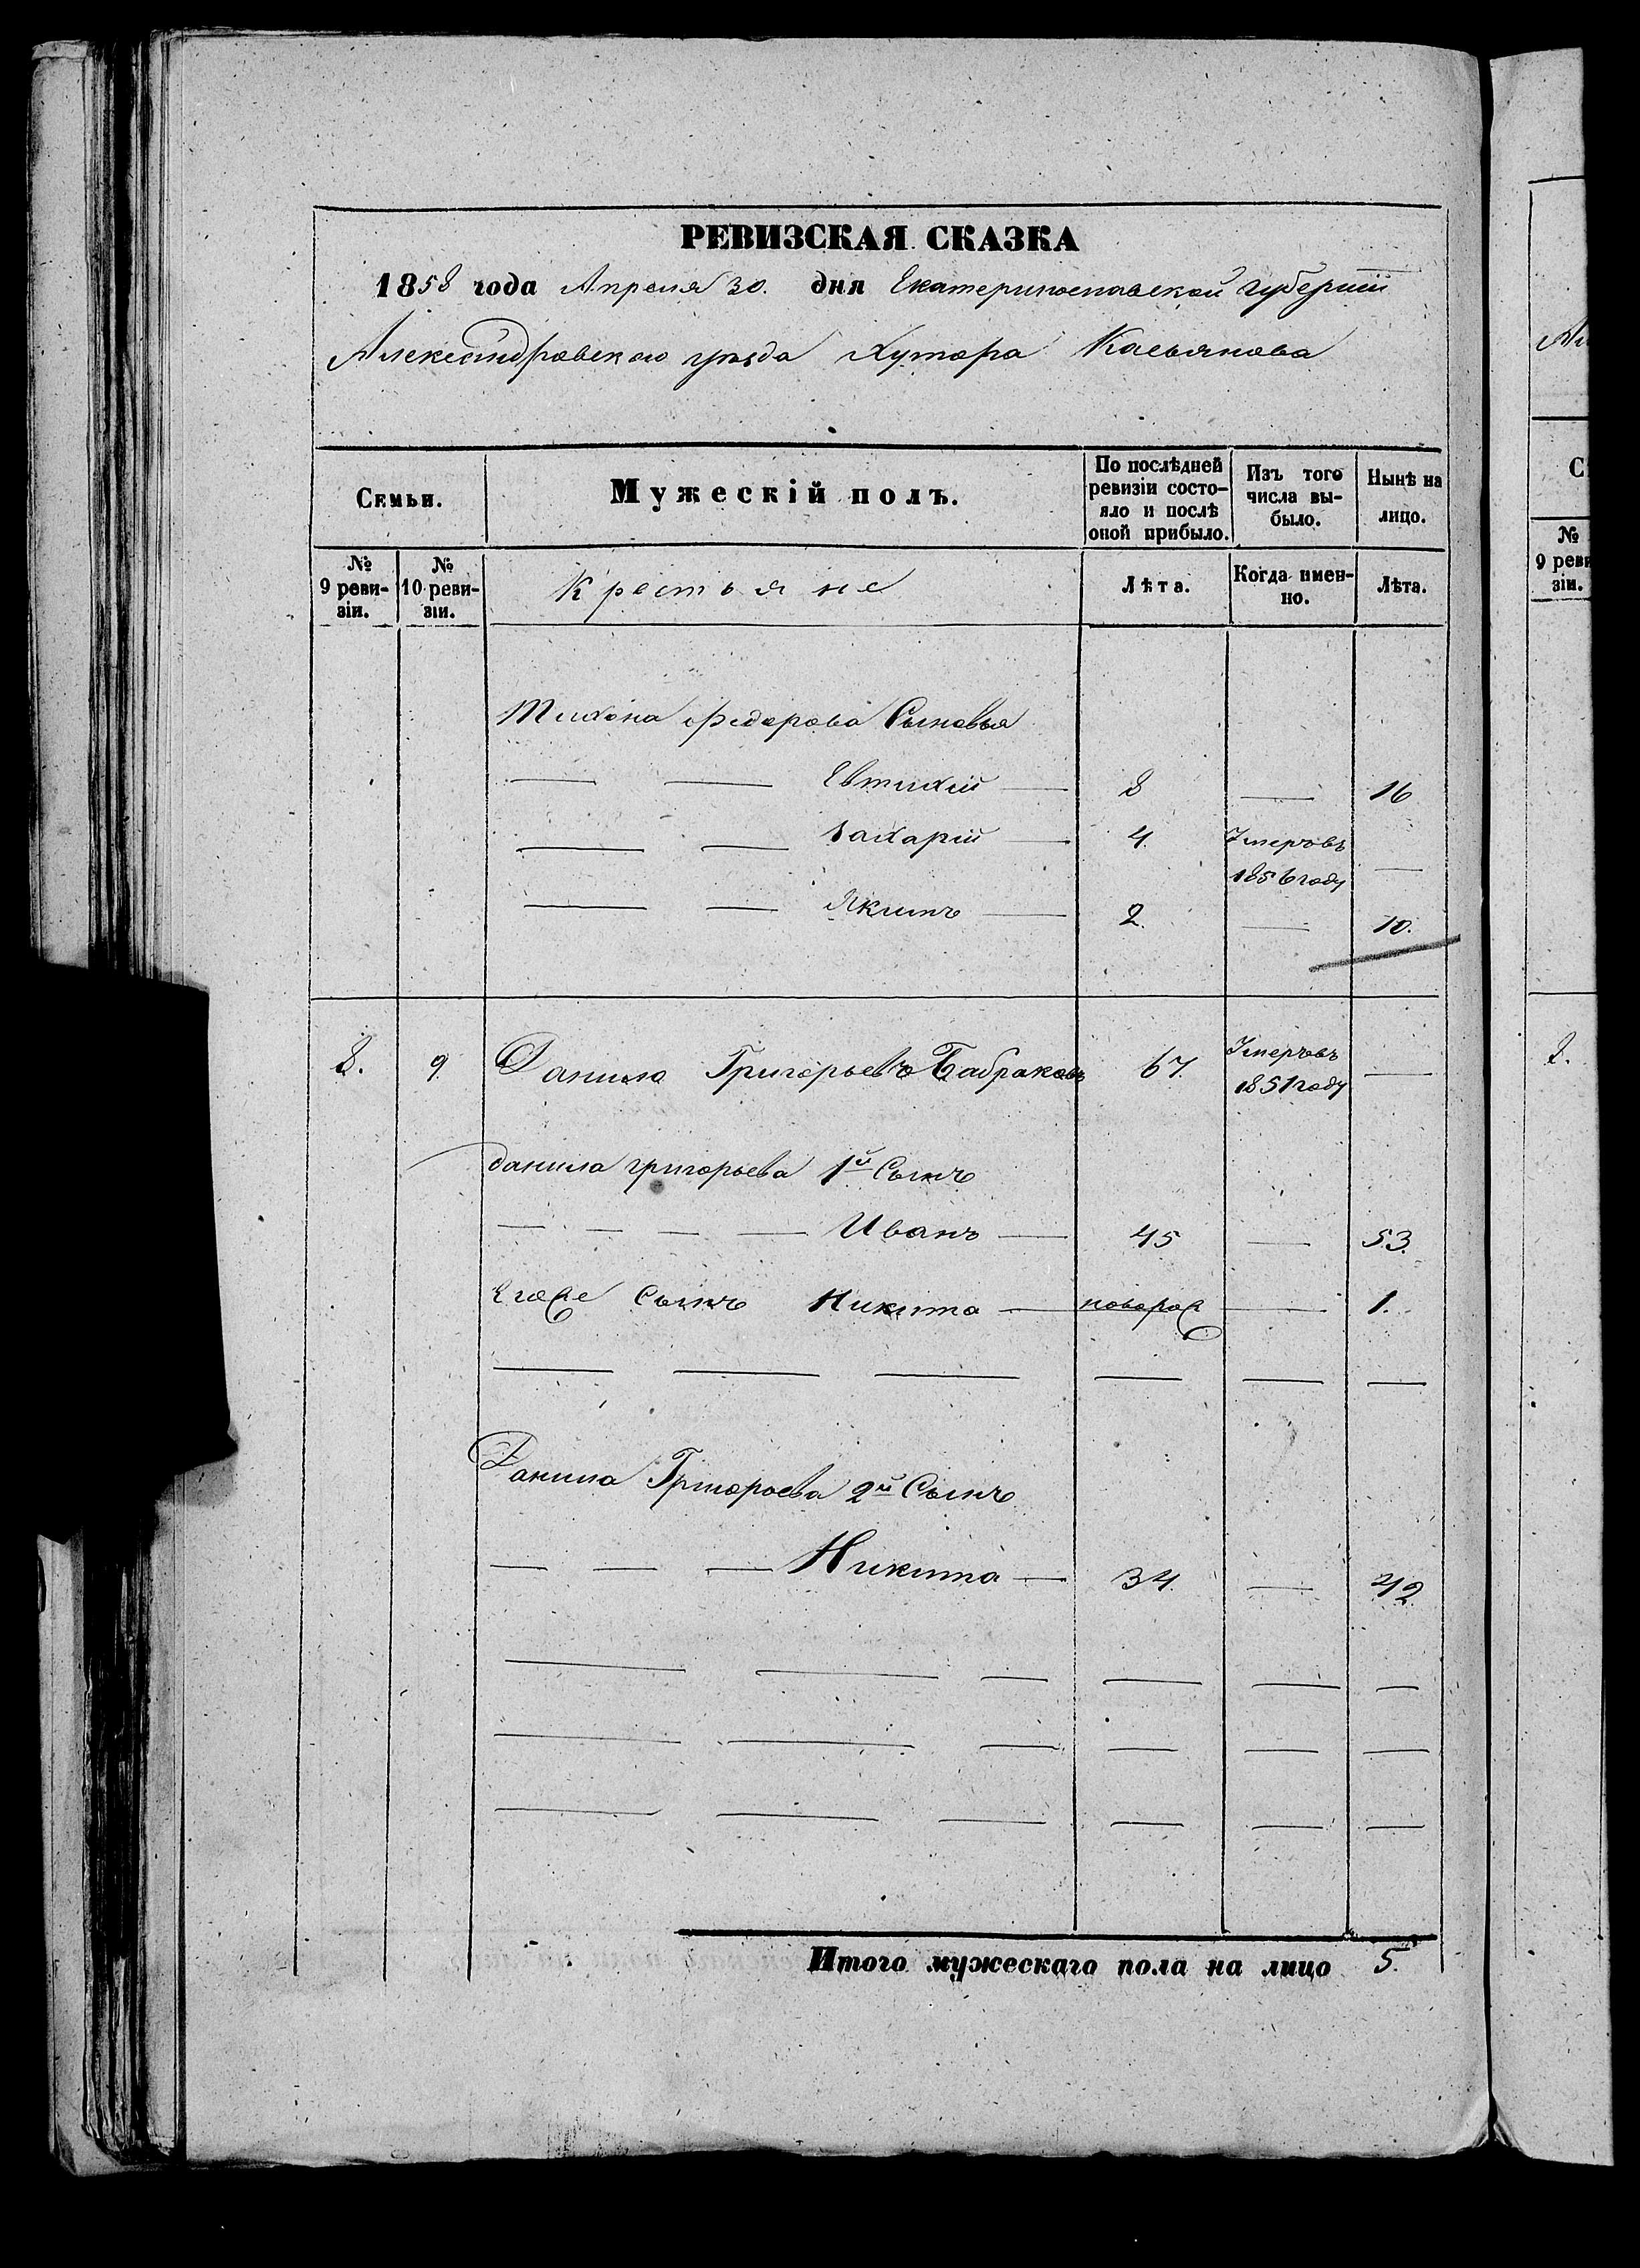 РЕВИЗСКАЯ СКАЗКА
1858 года Апреля 30. дня Екатеринославской Губернии
Александровского уезда Хутора Касьянова
Семьи. Мужескій полъ. По послѣдней ревизіи состо-яло и послѣ оной прибыло. Изъ того числа вы-было. Нынѣ на лицо.
№ 9 реви-зіи. № 10 реви-зіи. Крестьяне Лѣта. Когда имен-но. Лѣта.
Тихона Федорова Сыновья
Евтихій 8 16
Захарій 4. Умеръ въ 1856 году
Якимъ 2. 10.
8. 9. Данила Григорьевъ Бабраковъ 67. Умеръ въ 1851 году
Данила григорьева 1й Сынъ
Иванъ 45 53.
Егоже Сынъ Никита поворож 1.
Данила Григорьева 2й Сынъ
Никита 34. 42.
Итого мужескаго пола на лицо 5.
С
№
9 реви
зіи.
8.